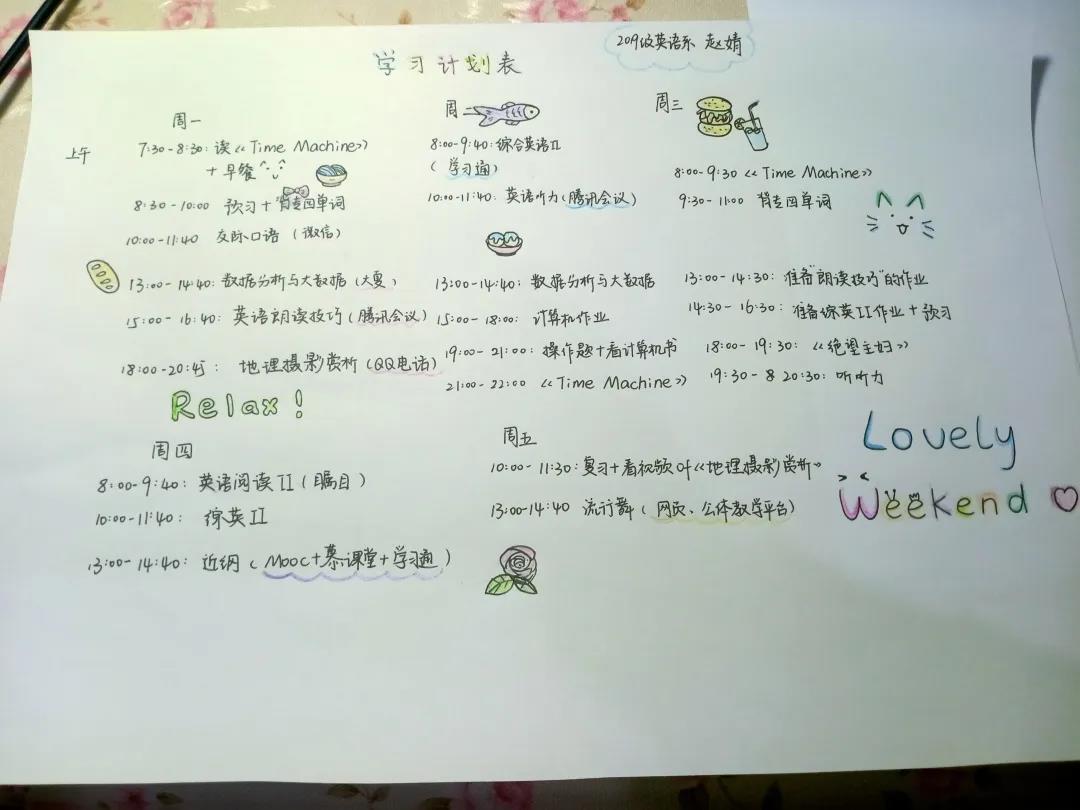 学习计划表
2019级英语系 赵婧
周一
上午
7:30-8:30: 读《Time Machine》
+ 早餐
8:30-10:00 预习+背专四单词
10:00-11:40 交际口语 (微信)
13:00-14:40: 数据分析与大数据 (大夏)
15:00-16:40: 英语朗读技巧 (腾讯会议)
18:00-20:45: 地理摄影赏析 (QQ电话)
Relax!
周二
8:00-9:40: 综合英语II
(学习通)
10:00-11:40: 英语听力 (腾讯会议)
13:00-14:40: 数据分析与大数据
15:00-18:00: 计算机作业
19:00-21:00: 操作题+看计算机书
21:00-22:00 《Time Machine》
周三
8:00-9:30 《Time Machine》
9:30-11:00 背专四单词
13:00-14:30: 准备"朗读技巧"的作业
14:30-16:30: 准备综英II作业+预习
18:00-19:30: 《绝望主妇》
19:30-8 20:30: 听听力
周四
8:00-9:40: 英语阅读II (瞩目)
10:00-11:40: 综英II
13:00-14:40: 近纲 (Mooc+慕课堂+学习通)
周五
10:00-11:30: 复习+看视频 of《地理摄影赏析》
13:00-14:40 流行舞 (网页、公体教学平台)
Lovely
Weekend